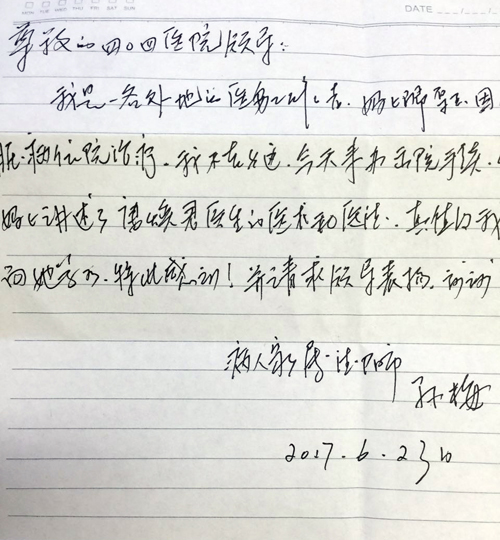 MON TUE WED THU FRI SAT SUN
DATE
尊敬的四0四医院领导:
我是一名外地的医务工作者。妈妈郎 因
病住院治疗。我不在身边。今天来办出院手续。
妈妈讲述了 焕君医生的医术和医德。真值得我
向她学习。特此感谢!并请求领导表扬。谢谢
病人家属:
孙梅
2017.6.23日